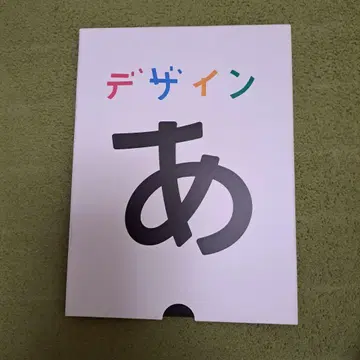 デザイン
あ